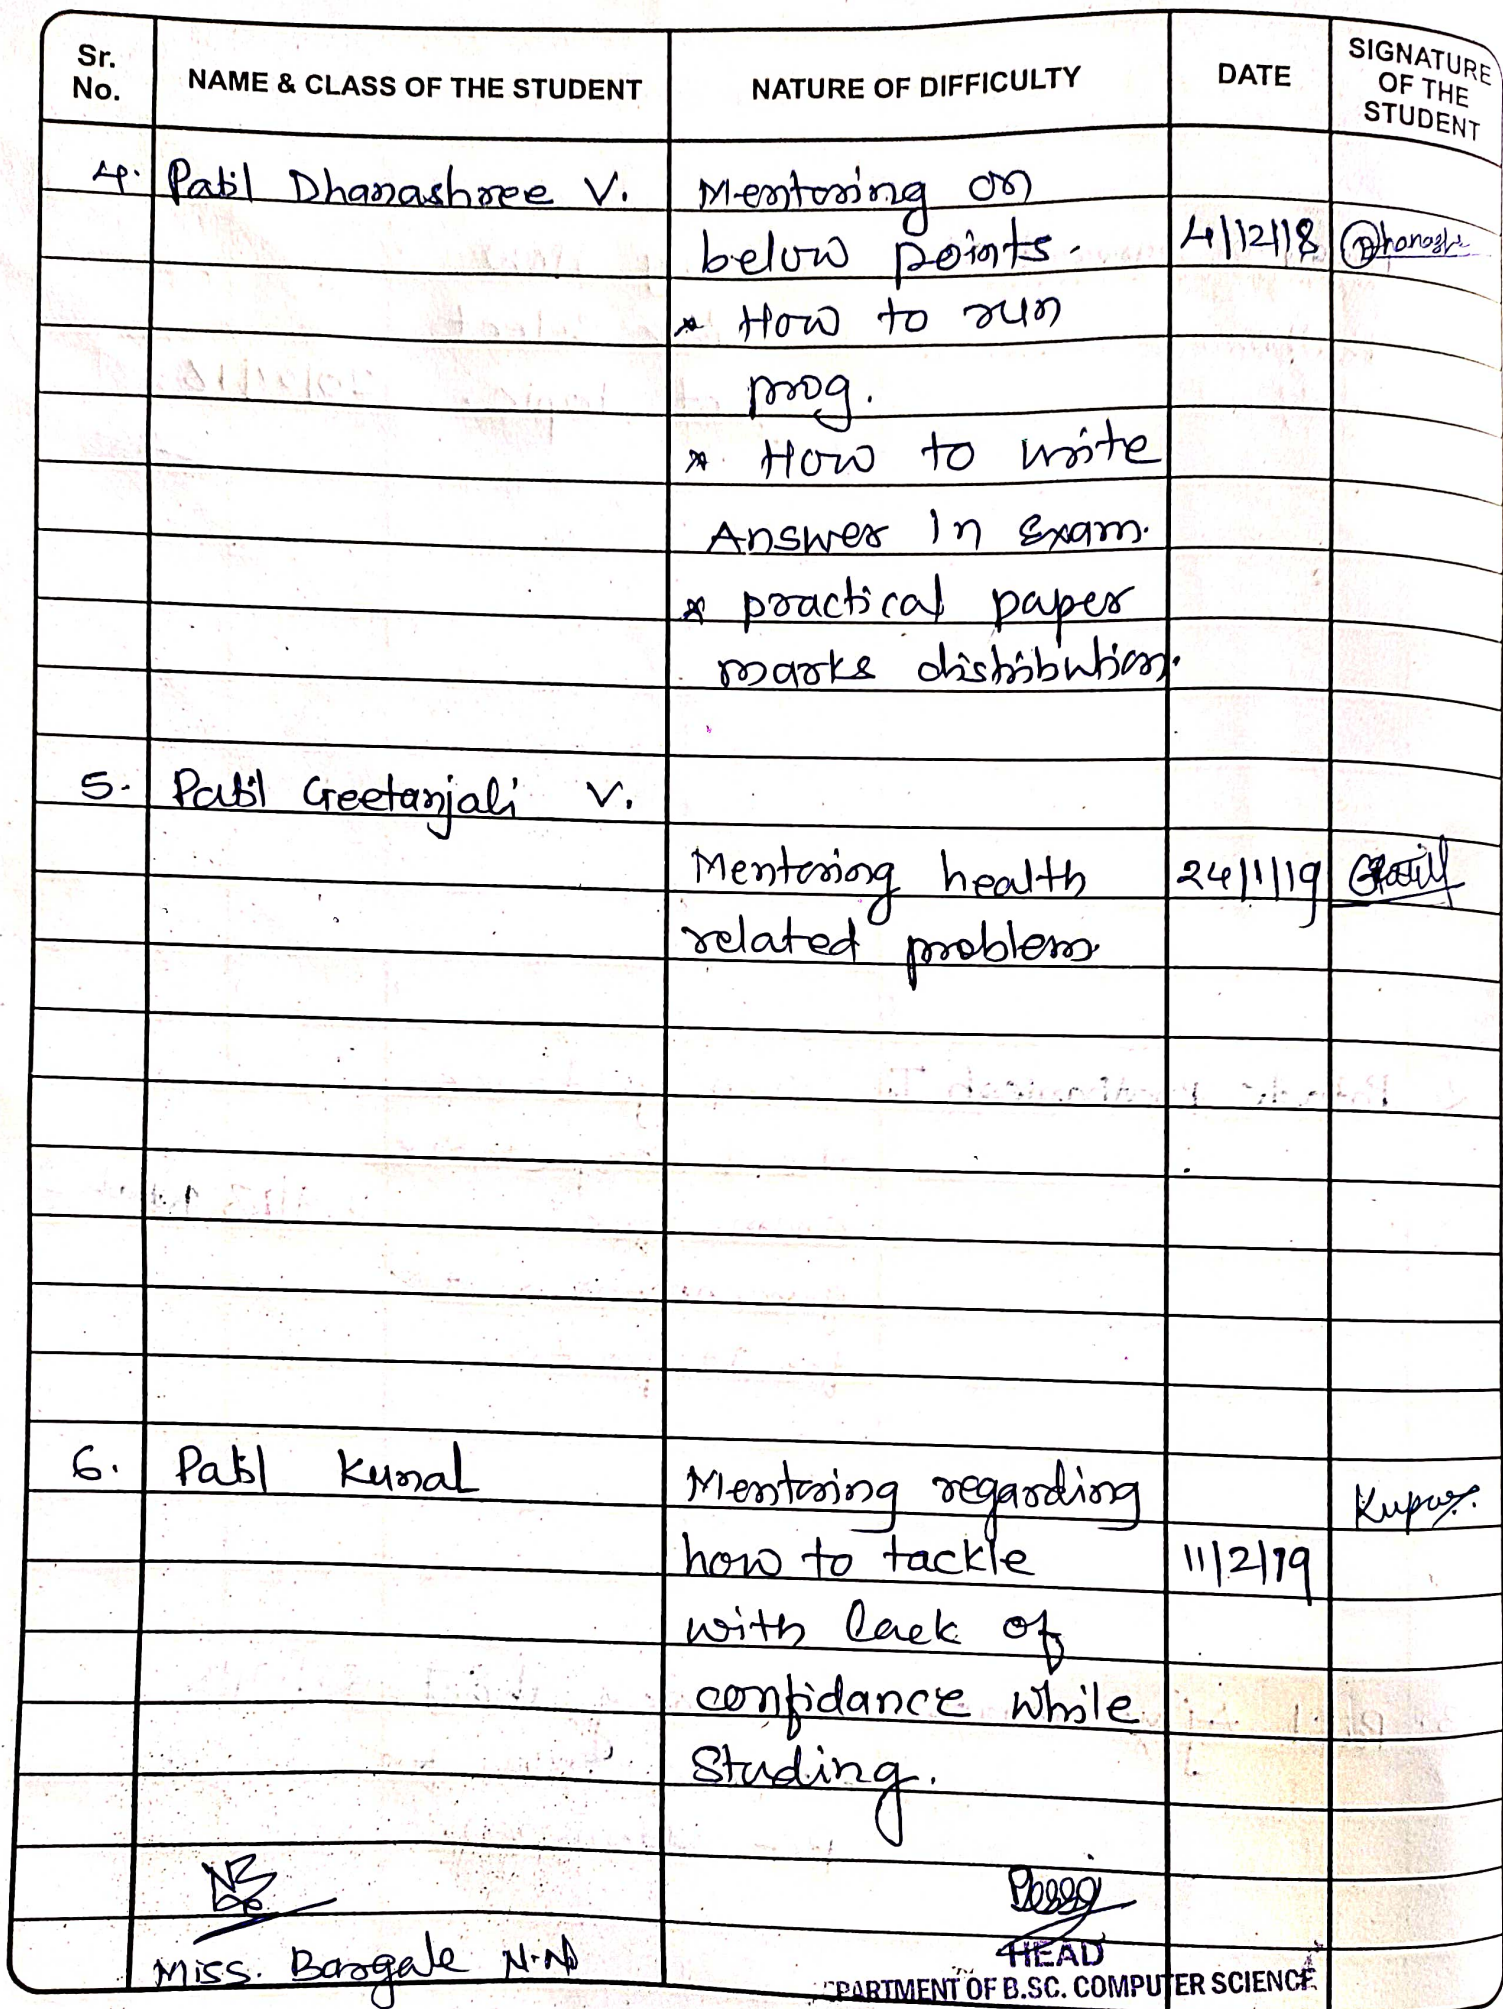 Sr. No. NAME & CLASS OF THE STUDENT NATURE OF DIFFICULTY DATE SIGNATURE OF THE STUDENT
4. Patil Dhanashree V. Mentoring on
below points. 4/12/18
* How to run
prog.
* How to write
Answer in Exam.
* practical paper
marks distribution.
5. Patil Geetanjali V.
Mentoring health 24/1/19
related problem
6. Patil Kunal Mentoring regarding
how to tackle 11/2/19
with lack of
confidance while
Studing.
Miss. Bargale N.N
HEAD
EPARTMENT OF B.SC. COMPUTER SCIENCE